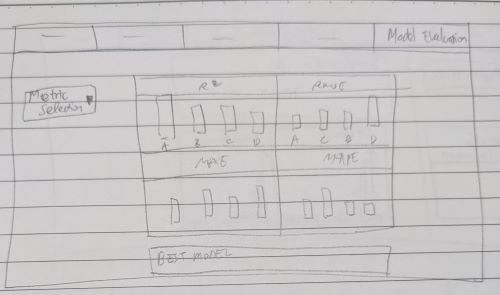 Model Evaluation
Metric
Selection
R2
RMSE
A B C D
A C B D
MAE
MAPE
BEST MODEL